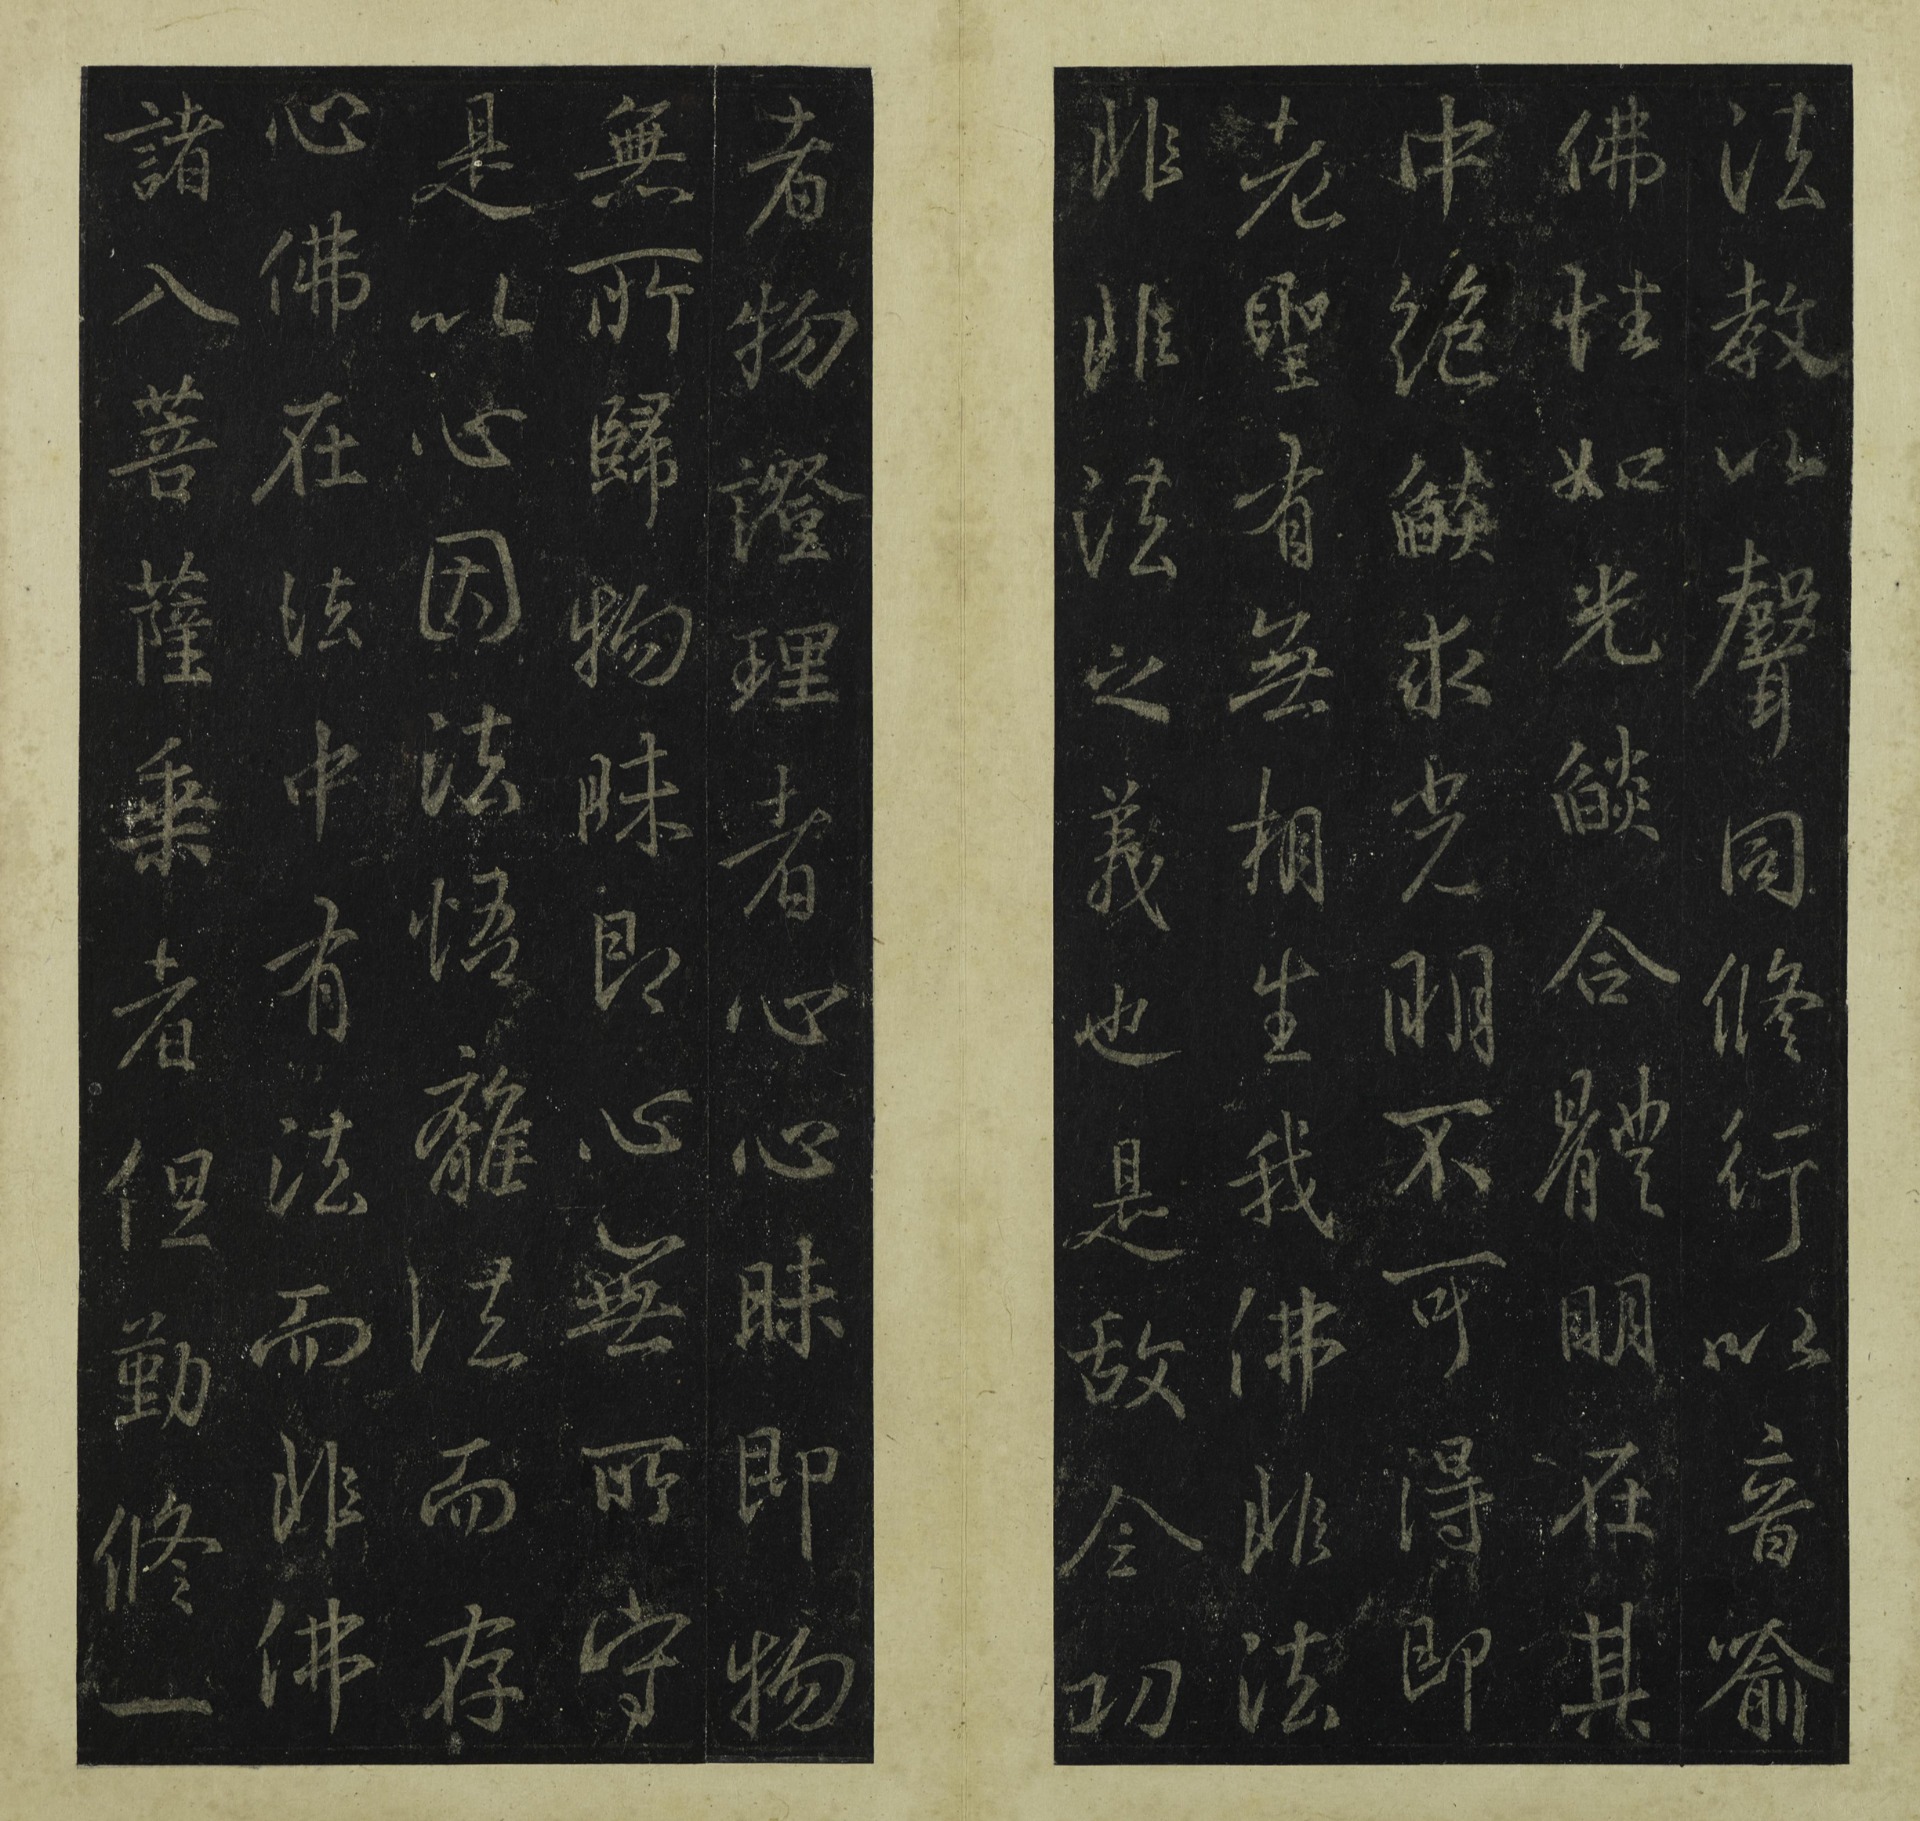 法教以聲同修行以音喻
佛性如光燄合體明在其
中绝燄求光明不可得即
老聖有無相生我佛非法
非非法之義也是故令功
者物證理者心心昧即物
無所歸物昧即心無所守
是以心因法悟離法而存
心佛在法中有法而非佛
諸八菩薩乘者但勤修一